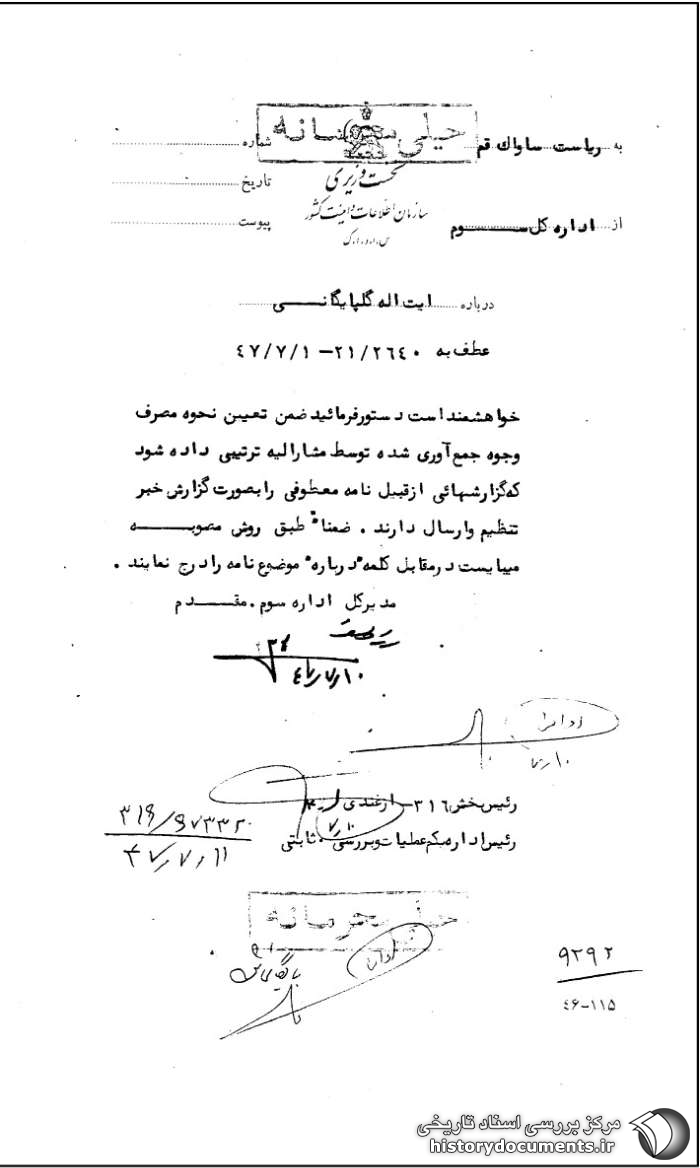 خیلی محرمانه
به ریاست ساواک قم
شماره
نخست وزیری
تاریخ
سازمان اطلاعات و امنیت کشور
س.ا.و.ا.ک
از اداره کل ســــوم
پیوست
درباره ایت اله گلپایگانــــی
عطف به ۲۱/۲٦٤۰ – ٤۷/۷/۱
خواهشمند است دستور فرمائید ضمن تعیین نحوه مصرف
وجوه جمع آوری شده توسط مشارالیه ترتیبی داده شود
که گزارشهائی از قبیل نامه معطوفی را بصورت گزارش خبر
تنظیم و ارسال دارند . ضمنا" طبق روش مصوبـــــه
میبایست در مقابل کلمه "درباره" موضوع نامه را درج نمایند .
مدیر کل اداره سوم . مقـــدم
٤۷/۷/۱۰
۱۰/۷
رئیس بخش ۳۱٦ – ازغندی
۱۰/۷
رئیس اداره یکم عملیات و بررسی . ثابتی
۳۱۶/۹۷۳۳۲
۴۷/۷/۱۱
خیلی محرمانه
بایگانی شود
۹۲۹۲
٤۶-۱۱۵
مرکز بررسی اسناد تاریخی
historydocuments.ir